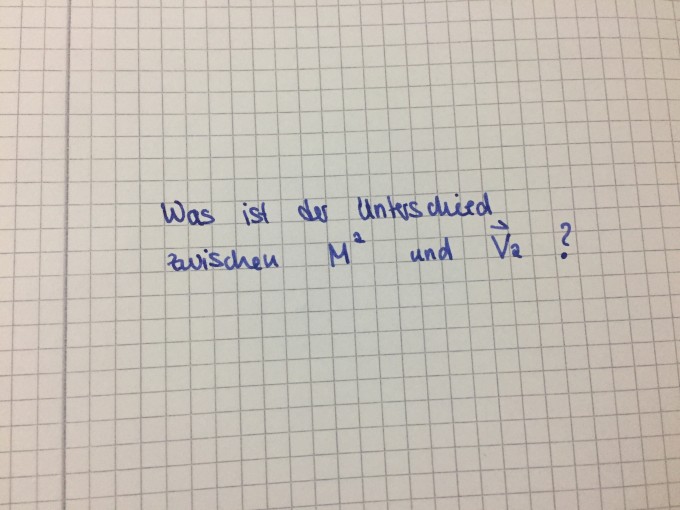 Was ist der Unterschied
zwischen M² und V⃗₂ ?